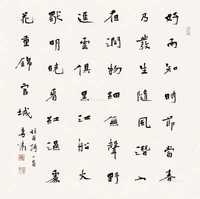 好雨知時節當春
乃發生隨風潛入
夜潤物細無聲野
徑雲俱黑江船火
獨明曉看紅濕處
花重錦官城